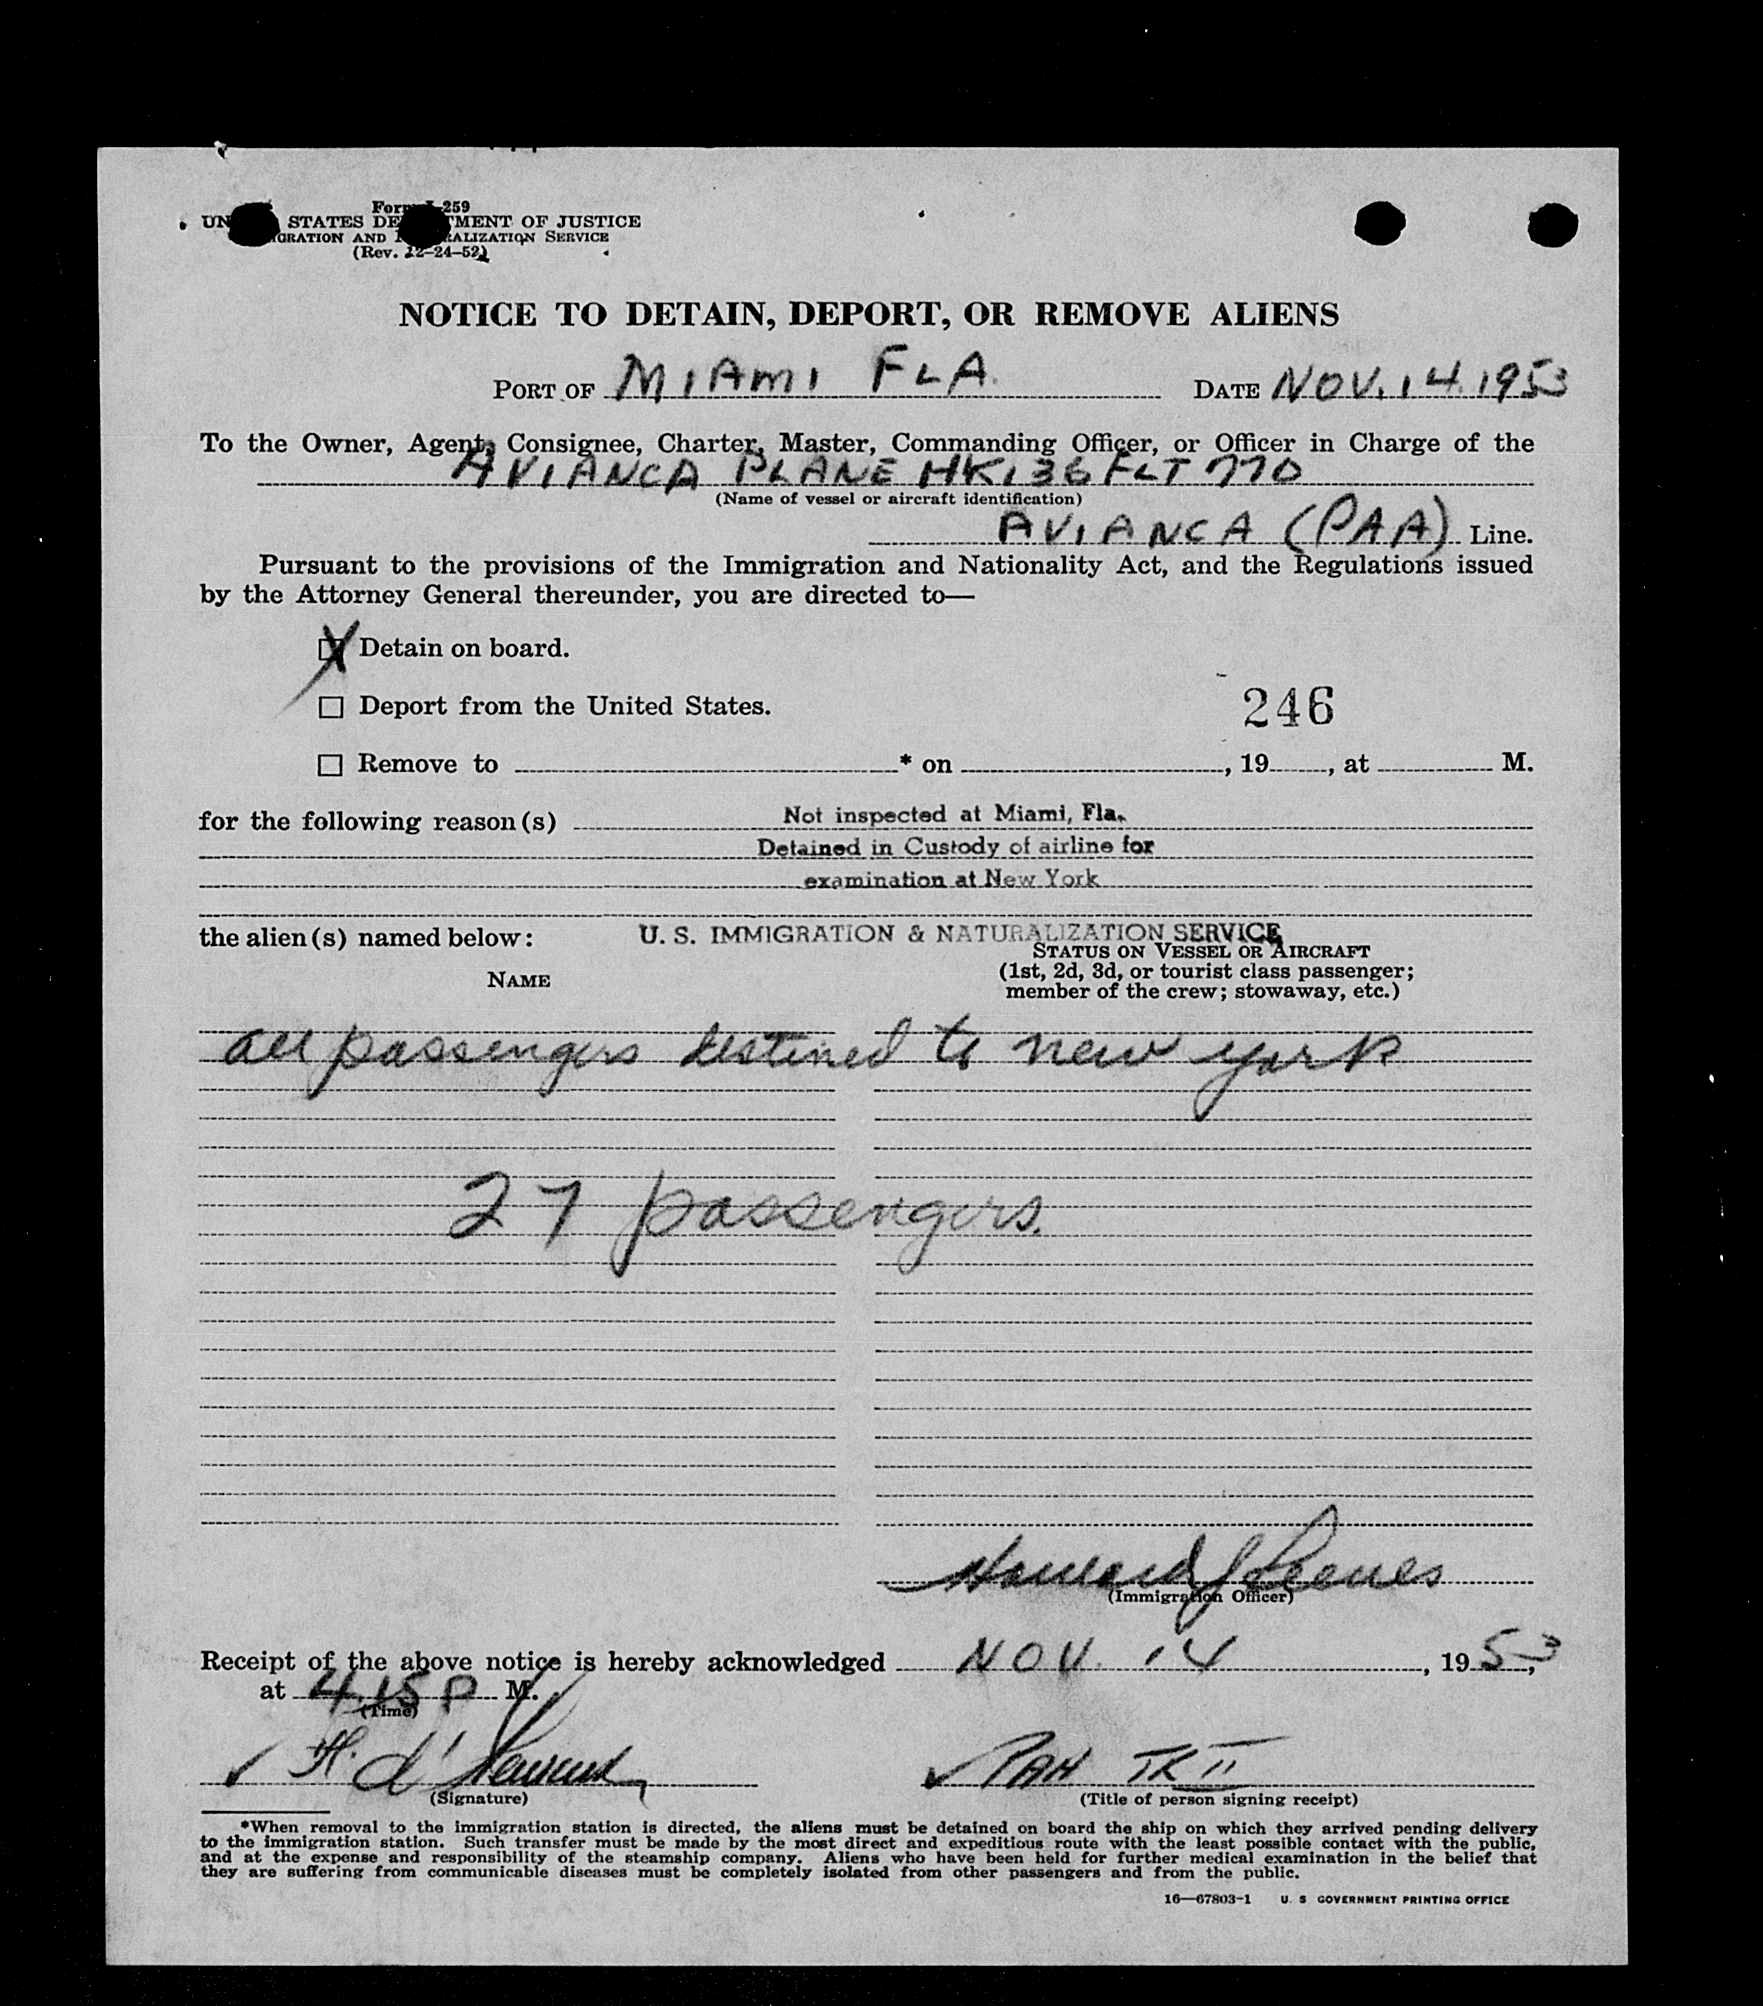 Form I-259
UNITED STATES DEPARTMENT OF JUSTICE
IMMIGRATION AND NATURALIZATION SERVICE
(Rev. 12-24-52)
NOTICE TO DETAIN, DEPORT, OR REMOVE ALIENS
PORT OF MIAMI FLA. DATE NOV. 14. 1953
To the Owner, Agent, Consignee, Charter, Master, Commanding Officer, or Officer in Charge of the
AVIANCA PLANE HK136 FLT 770
(Name of vessel or aircraft identification)
AVIANCA (PAA) Line.
Pursuant to the provisions of the Immigration and Nationality Act, and the Regulations issued
by the Attorney General thereunder, you are directed to—
X Detain on board.
☐ Deport from the United States.
246
☐ Remove to * on , 19 , at M.
for the following reason(s) Not inspected at Miami, Fla.
Detained in Custody of airline for
examination at New York
the alien(s) named below: U. S. IMMIGRATION & NATURALIZATION SERVICE
NAME
STATUS ON VESSEL OR AIRCRAFT
(1st, 2d, 3d, or tourist class passenger;
member of the crew; stowaway, etc.)
All passengers destined to new york
27 passengers.
Howard J
(Immigration Officer)
Receipt of the above notice is hereby acknowledged NOV. 14, 1953,
at 4.15 P M.
(Time)
H. d'
(Signature)
(Title of person signing receipt)
*When removal to the immigration station is directed, the aliens must be detained on board the ship on which they arrived pending delivery
to the immigration station. Such transfer must be made by the most direct and expeditious route with the least possible contact with the public,
and at the expense and responsibility of the steamship company. Aliens who have been held for further medical examination in the belief that
they are suffering from communicable diseases must be completely isolated from other passengers and from the public.
16—67803-1 U. S GOVERNMENT PRINTING OFFICE